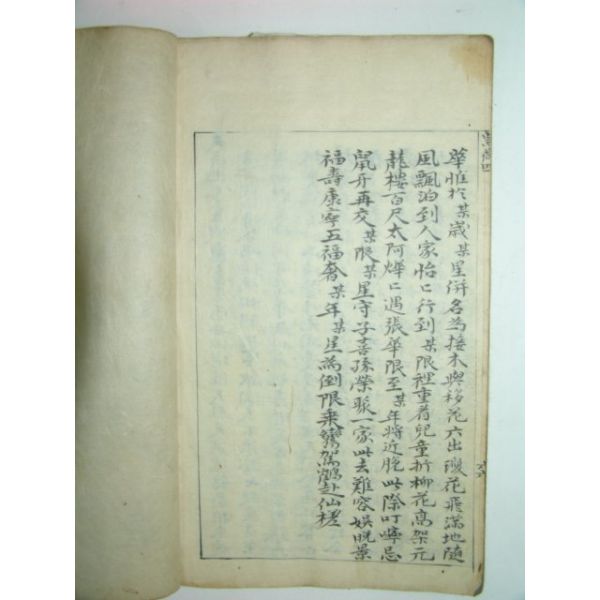 華惟於某歲某星併名為接木與移花六出瓊花飛滿地隨
風飄泊到人家怡〻行到某限裡重着兒童折柳花高架元
龍樓百尺太阿燁〻遇張華限至某年將近脆此際叮嚀忌
鼠牙再交某限某星守子喜孫榮聚一家此去難容娛晚景
福壽康寧五福奢某年某星為倒限乘鸞駕鶴赴仙槎